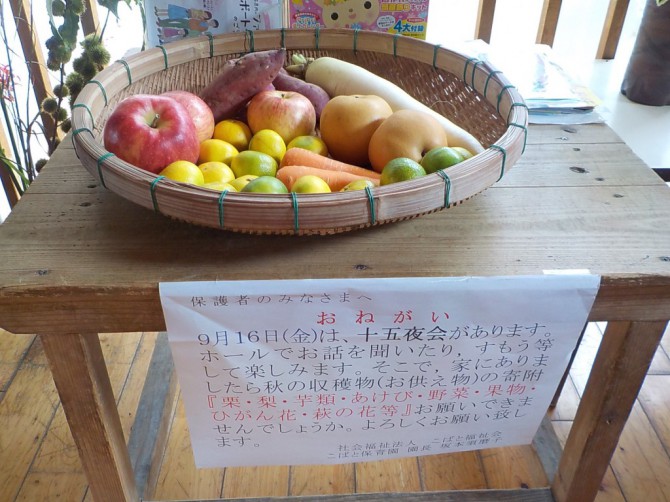 4大付録
保護者のみなさまへ
おねがい
9月16日(金)は、十五夜会があります。
ホールでお話を聞いたり，すもう等
して楽しみます。そこで，家にありま
したら秋の収穫物(お供え物)の寄附
『栗・梨・芋類・あけび・野菜・果物・
ひがん花・萩の花等』お願いできま
せんでしょうか。よろしくお願い致し
ます。
社会福祉法人 こばと福祉会
こばと保育園 園長 坂本